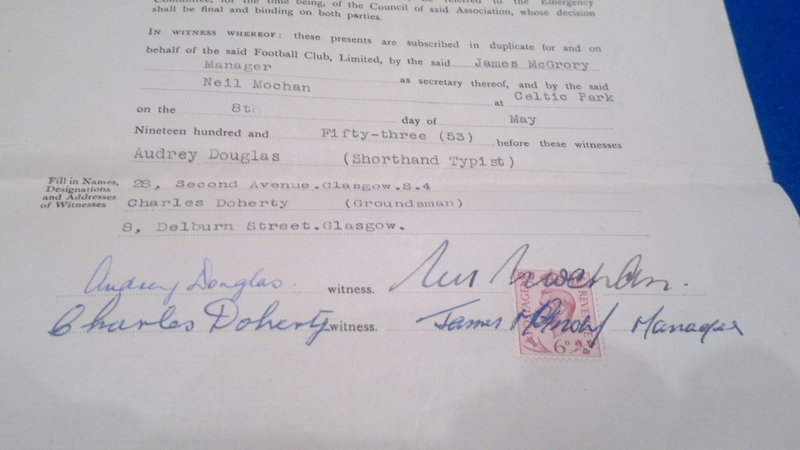 for the time being, of the Council of said Association, whose decision
shall be final and binding on both parties.
IN WITNESS WHEREOF: these presents are subscribed in duplicate for and on
behalf of the said Football Club, Limited, by the said James McGrory
Manager as secretary thereof, and by the said
Neil Mochan at Celtic Park
on the 8th day of May
Nineteen hundred and Fifty-three (53) before these witnesses
Audrey Douglas (Shorthand Typist)
Fill in Names,
Designations
and Addresses
of Witnesses
28, Second Avenue.Glasgow.S.4
Charles Doherty (Groundsman)
8, Delburn Street.Glasgow.
Audrey Douglas. witness. Neil Mochan.
Charles Doherty witness. James McGrory Manager
POSTAGE REVENUE
6D